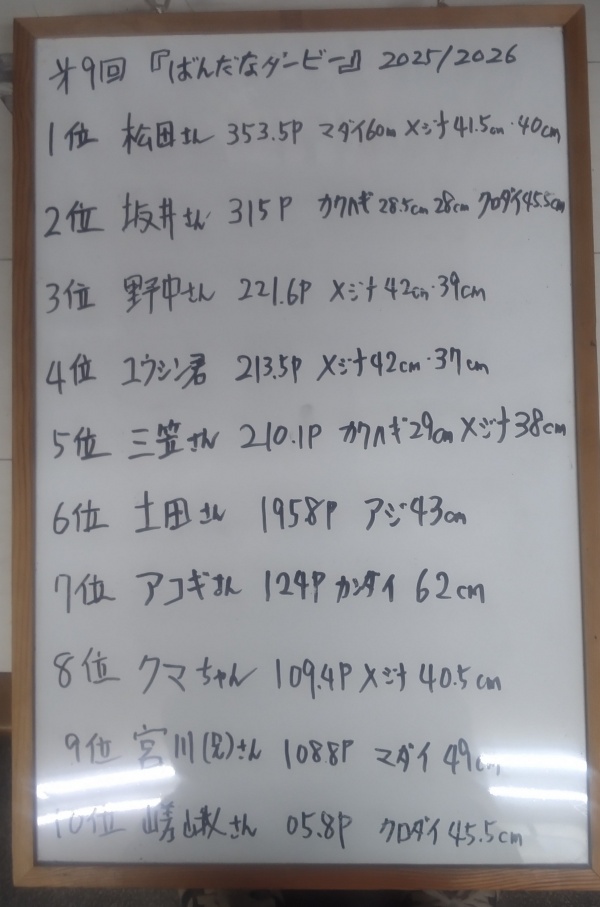 第9回『ばんだなダービー』2025/2026
1位 松田さん 353.5P マダイ60cm メジナ41.5cm・40cm
2位 坂井さん 315P カワハギ28.5cm 28cm クロダイ45.5cm
3位 野中さん 221.6P メジナ42cm・39cm
4位 ユウシン君 213.5P メジナ42cm・37cm
5位 三笠さん 210.1P カワハギ29cm メジナ38cm
6位 土田さん 195.8P アジ43cm
7位 アコギさん 124P カンダイ 62cm
8位 クマちゃん 109.4P メジナ40.5cm
9位 宮川(兄)さん 108.8P マダイ 49cm
10位 嵯峨さん 05.8P クロダイ45.5cm